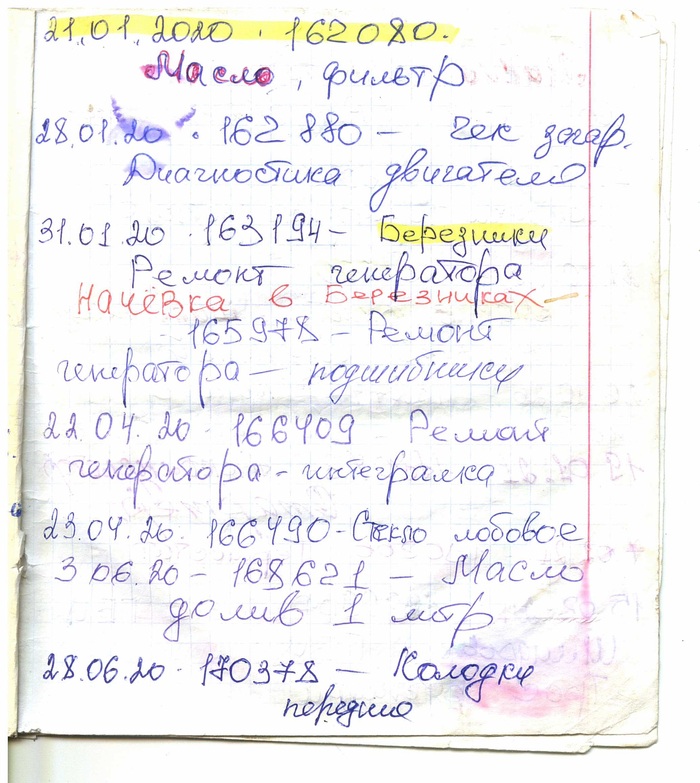 21.01.2020. 162080.
Масло, фильтр
28.01.20. 162 880 – чек загар.
Диагностика двигателя
31.01.20. 163194 – Березники
Ремонт генератора
Начёвка в Березниках
165978 – Ремонт
генератора – подшибники
22.04.20 166409 Ремонт
генератора - интегралка
23.04.20. 166490 - Стекло лобовое
3 06.20 – 168621 – Масло
долив 1 литр
28.06.20. 170378 – Колодки
передние